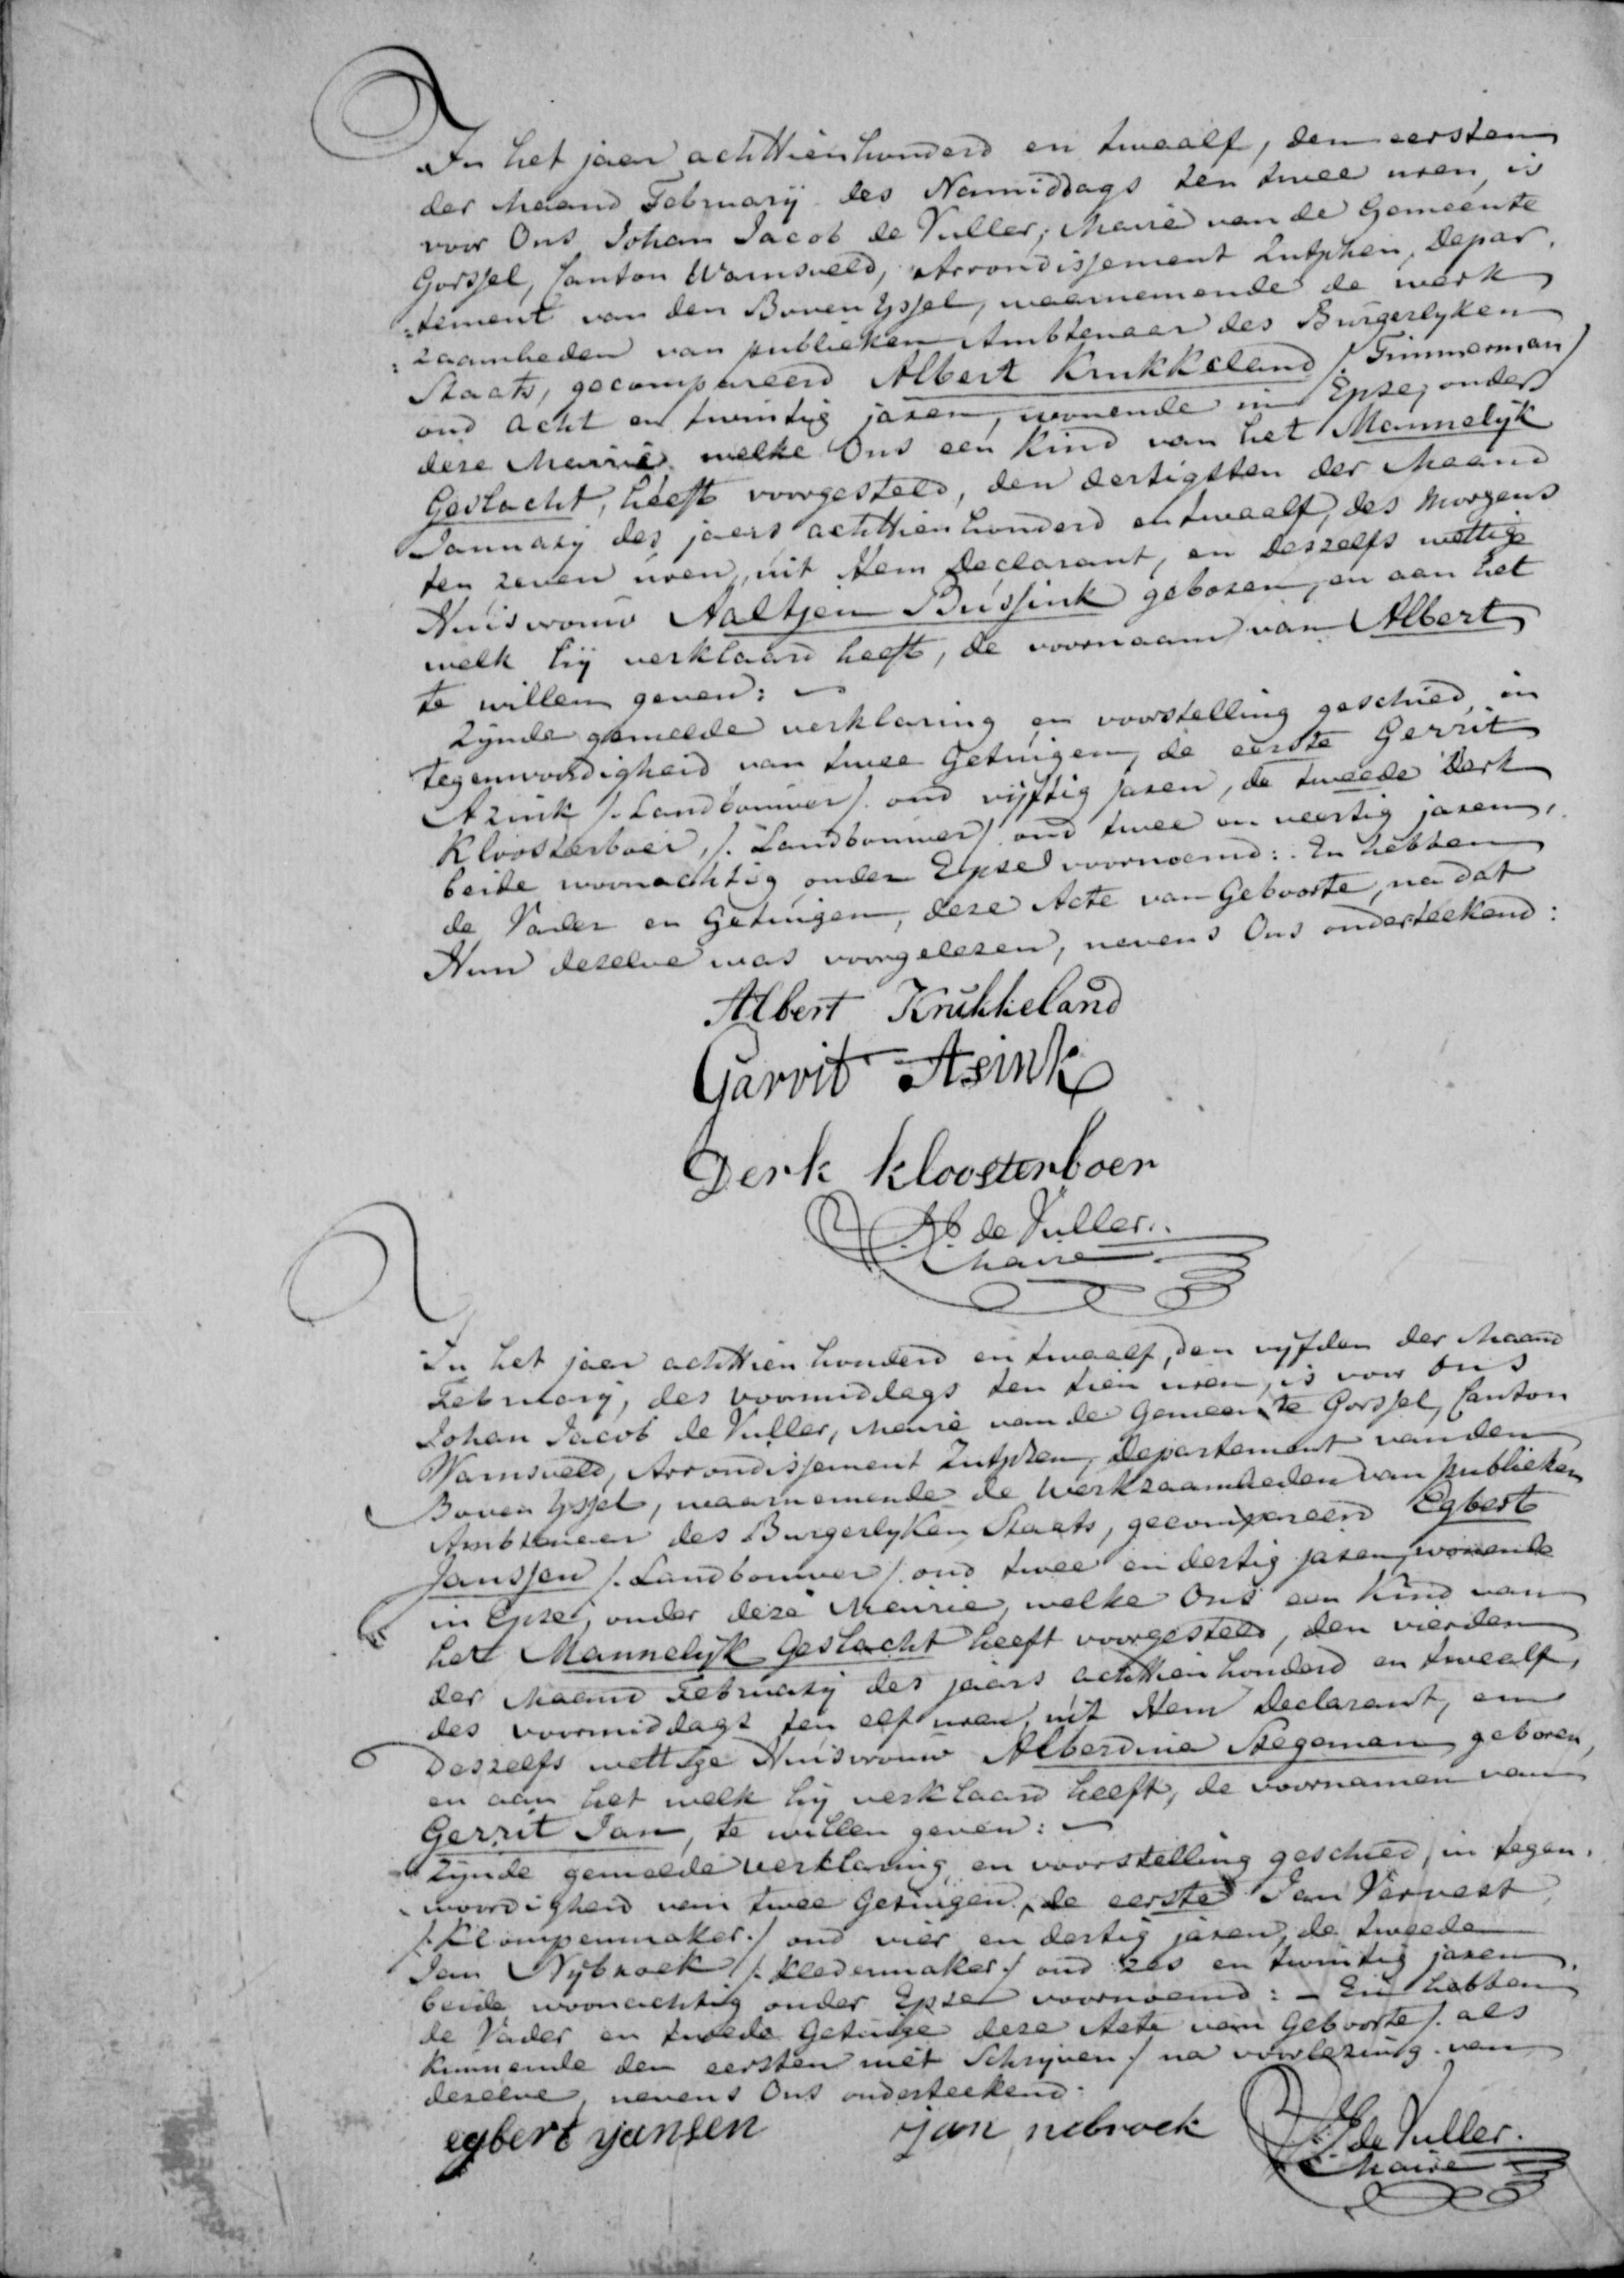 In het jaar achttienhonderd en twaalf, den eersten
der Maand February des Namiddags ten twee uren, is
voor Ons Johan Jacob de Vuller, Maire van de Gemeente
Gorssel, Canton Warnsveld, Arrondissement Zutphen, Depar-
tement van den Boven Yssel, waarnemende de werk
zaamheden van publieken Ambtenaar des Burgerlyken
Staats, gecompareerd Albert Krukkeland /. Timmerman /
oud acht en twintig jaren, wonende in Epse, onder
deze Mairie, welke Ons een Kind van het Mannelyk
Geslacht, heeft voorgesteld, den dertigsten der Maand
January des jaars achttienhonderd en twaalf, des Morgens
ten zeven uren, uit Hem Declarant, en deszelfs wettige
Huisvrouw Aaltjen Bussink geboren, en aan het
welk hy verklaard heeft, de voornaam van Albert
te willen geven: ~
Zynde gemelde verklaring en voorstelling geschied, in
tegenwoordigheid van twee Getuigen, de eerste Gerrit
Azink /. Landbouwer /. oud vyftig jaren, de tweede Derk
Kloosterboer, /. Landbouwer / oud twee en veertig jaren,
beide woonachtig onder Epse voornoemd: En hebben
de Vader en Getuigen, deze Acte van Geboorte, na dat
Hun dezelve was voorgelezen, nevens Ons onderteekend:
Albert Krukkeland
Garrit Asink
Derk kloosterboer
de Vuller.
Maire
In het jaar achttienhonderd en twaalf, den vyfden der Maand
February, des voormiddags ten tien uren, is voor Ons
Johan Jacob de Vuller, Maire van de Gemeente Gorssel, Canton
Warnsveld, Arrondissement Zutphen, Departement van den
Boven Yssel, waarnemende de Werkzaamheden van publieken
Ambtenaar des Burgerlyken Staats, gecompareerd Egbert
Janssen /. Landbouwer /. oud twee en dertig jaren, wonende
in Epse, onder deze Mairie, welke Ons een Kind van
het Mannelyk Geslacht heeft voorgesteld, den vierden
der Maand February des jaars achttienhonderd en twaalf,
des voormiddags ten elf uren, uit Hem Declarant, en
Deszelfs wettige Huisvrouw Alberdina Stegeman geboren,
en aan het welk hy verklaard heeft, de voornamen van
Gerrit Jan, te willen geven: ~
Zynde gemelde verklaring en voorstelling geschied, in tegen-
woordigheid van twee Getuigen, de eerste Jan Vervest
/. Klompenmaker ./ oud vier en dertig jaren, de tweede
Jan Nybroek /. Kledermaker ./ oud zes en twintig jaren,
beide woonachtig onder Epse voornoemd: - En hebben
de Vader en tweede Getuige deze Acte van Geboorte /. als
kunnende den eersten niet Schryven / na voorlezing van
dezelve, nevens Ons onderteekend:
egbert yansen jan nebroek de Vuller.
Maire